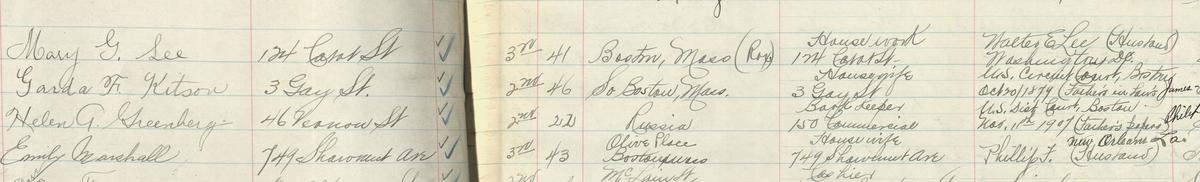 House work Walter E Lee (Husband)
Mary G. Lee 124 Cabot St 3rd 41 Boston, Mass (Rox) 124 Cabot St. Washington Dc.
Housewife U.S. Circuit Court, Boston
Garda F. Kitson 3 Gay St. 2nd 46 So. Boston, Mass. 3 Gay St. Oct 20/1879 (Father in law's James
Book keeper U.S. Dist Court, Boston
Helen A. Greenberg 46 Vernon St 2nd 22 Russia 150 Commercial Nov. 11th 1907 (Father's papers Philip
Olive Place House wife new Orleans La.
Emily Marshall 749 Shawmut Ave 3rd 43 749 Shawmut Ave Phillip F. (Husband)
2nd McLain St. Cashier